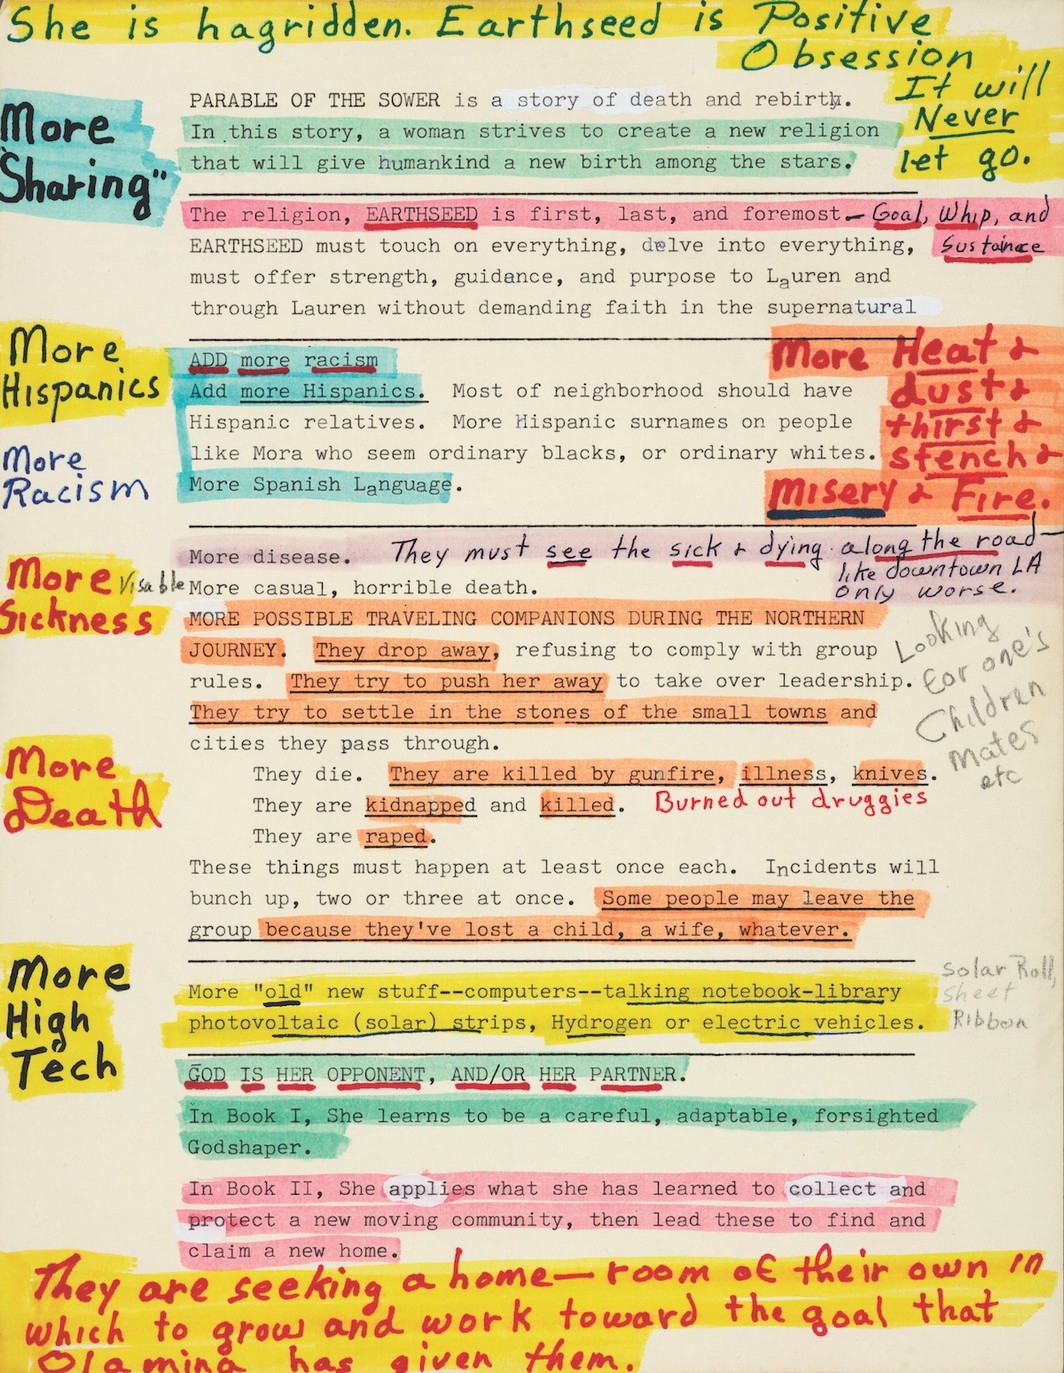 She is hagridden. Earthseed is Positive
Obsession
It will
Never
let go.
More
"Sharing"
PARABLE OF THE SOWER is a story of death and rebirth.
In this story, a woman strives to create a new religion
that will give humankind a new birth among the stars.
The religion, EARTHSEED is first, last, and foremost— Goal, Whip, and
Sustaince
EARTHSEED must touch on everything, delve into everything,
must offer strength, guidance, and purpose to Lauren and
through Lauren without demanding faith in the supernatural
More
Hispanics
More
Racism
ADD more racism
Add more Hispanics. Most of neighborhood should have
Hispanic relatives. More Hispanic surnames on people
like Mora who seem ordinary blacks, or ordinary whites.
More Spanish Language.
More Heat &
dust &
thirst &
stench &
Misery & Fire.
More disease. They must see the sick & dying along the road—
like downtown LA
only worse.
More Visable
Sickness
More casual, horrible death.
MORE POSSIBLE TRAVELING COMPANIONS DURING THE NORTHERN
JOURNEY. They drop away, refusing to comply with group
rules. They try to push her away to take over leadership.
They try to settle in the stones of the small towns and
cities they pass through.
Looking
for one's
Children
mates
etc
More
Death
They die. They are killed by gunfire, illness, knives.
They are kidnapped and killed. Burned out druggies
They are raped.
These things must happen at least once each. Incidents will
bunch up, two or three at once. Some people may leave the
group because they've lost a child, a wife, whatever.
More
High
Tech
More "old" new stuff--computers--talking notebook-library
photovoltaic (solar) strips, Hydrogen or electric vehicles.
Solar Roll,
Sheet
Ribbon
GOD IS HER OPPONENT, AND/OR HER PARTNER.
In Book I, She learns to be a careful, adaptable, forsighted
Godshaper.
In Book II, She applies what she has learned to collect and
protect a new moving community, then lead these to find and
claim a new home.
They are seeking a home—room of their own in
which to grow and work toward the goal that
Olamina has given them.